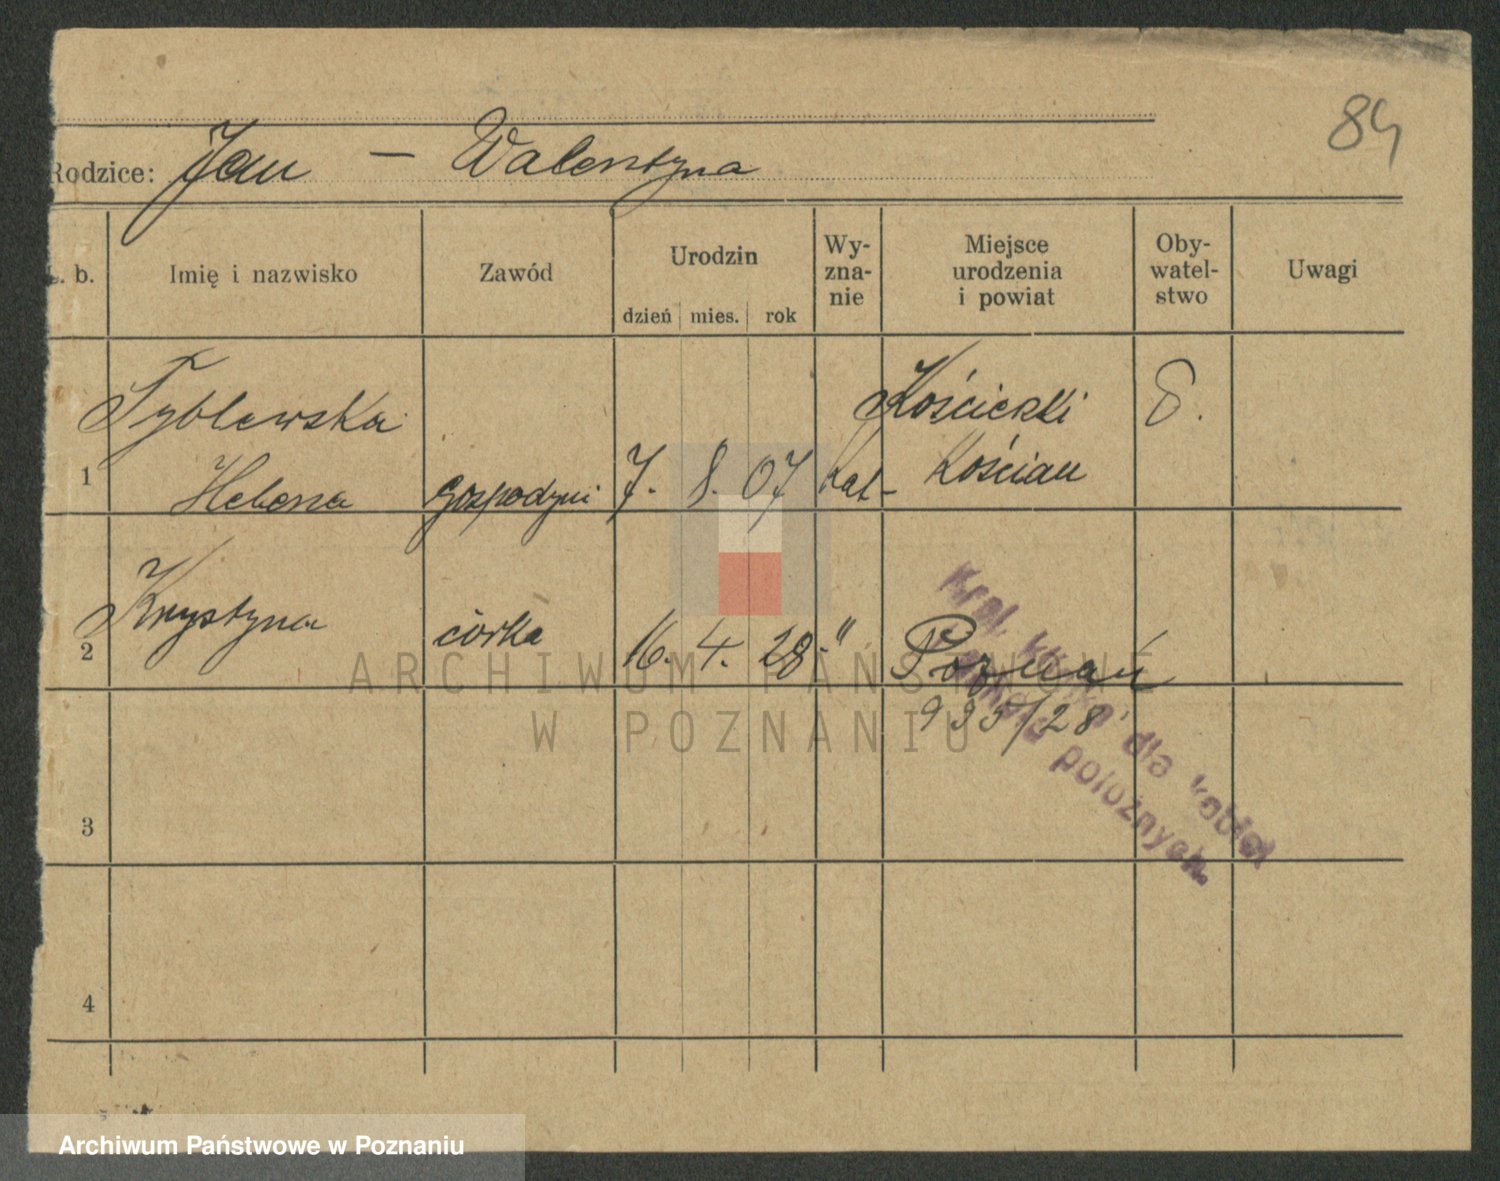 84
Rodzice: Jan — Walentyna
L. b.
Imię i nazwisko
Zawód
Urodzin
dzień
mies.
rok
Wy-
zna-
nie
Miejsce
urodzenia
i powiat
Oby-
watel-
stwo
Uwagi
1
Tyblewska
Helena
gospodyni
7. 8. 07
kat-
Kościan
2
Krystyna
córka
16. 4. 28.
"
Poznań
935/28
Kraj. klinika dla kobiet
położnych.
3
4
ARCHIWUM PAŃSTWOWE
W POZNANIU
Archiwum Państwowe w Poznaniu